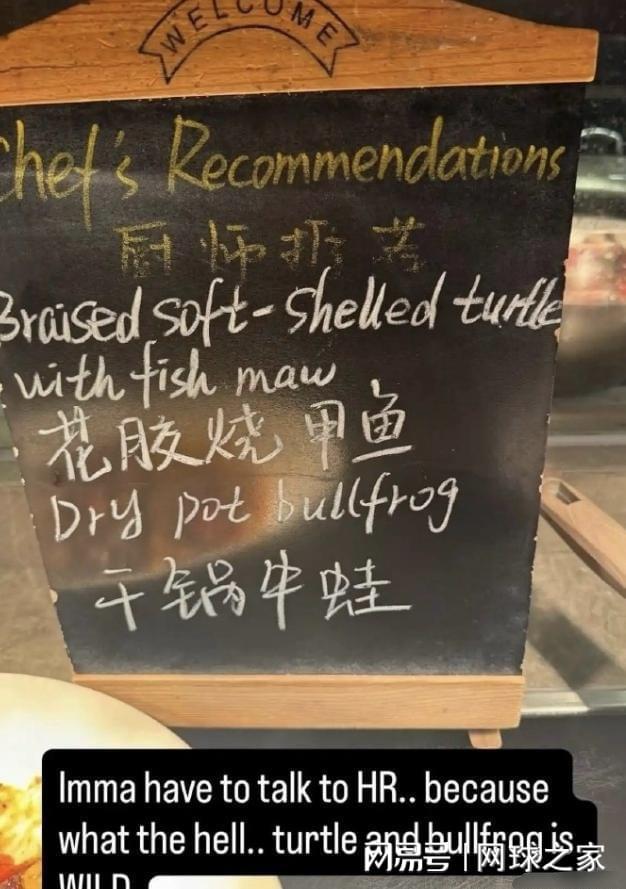 WELCOME
Chef's Recommendations
厨师推荐
Braised soft-shelled turtle
with fish maw
花胶烧甲鱼
Dry pot bullfrog
干锅牛蛙
Imma have to talk to HR.. because
what the hell.. turtle and bullfrog is
WILD
网易号 | 网球之家